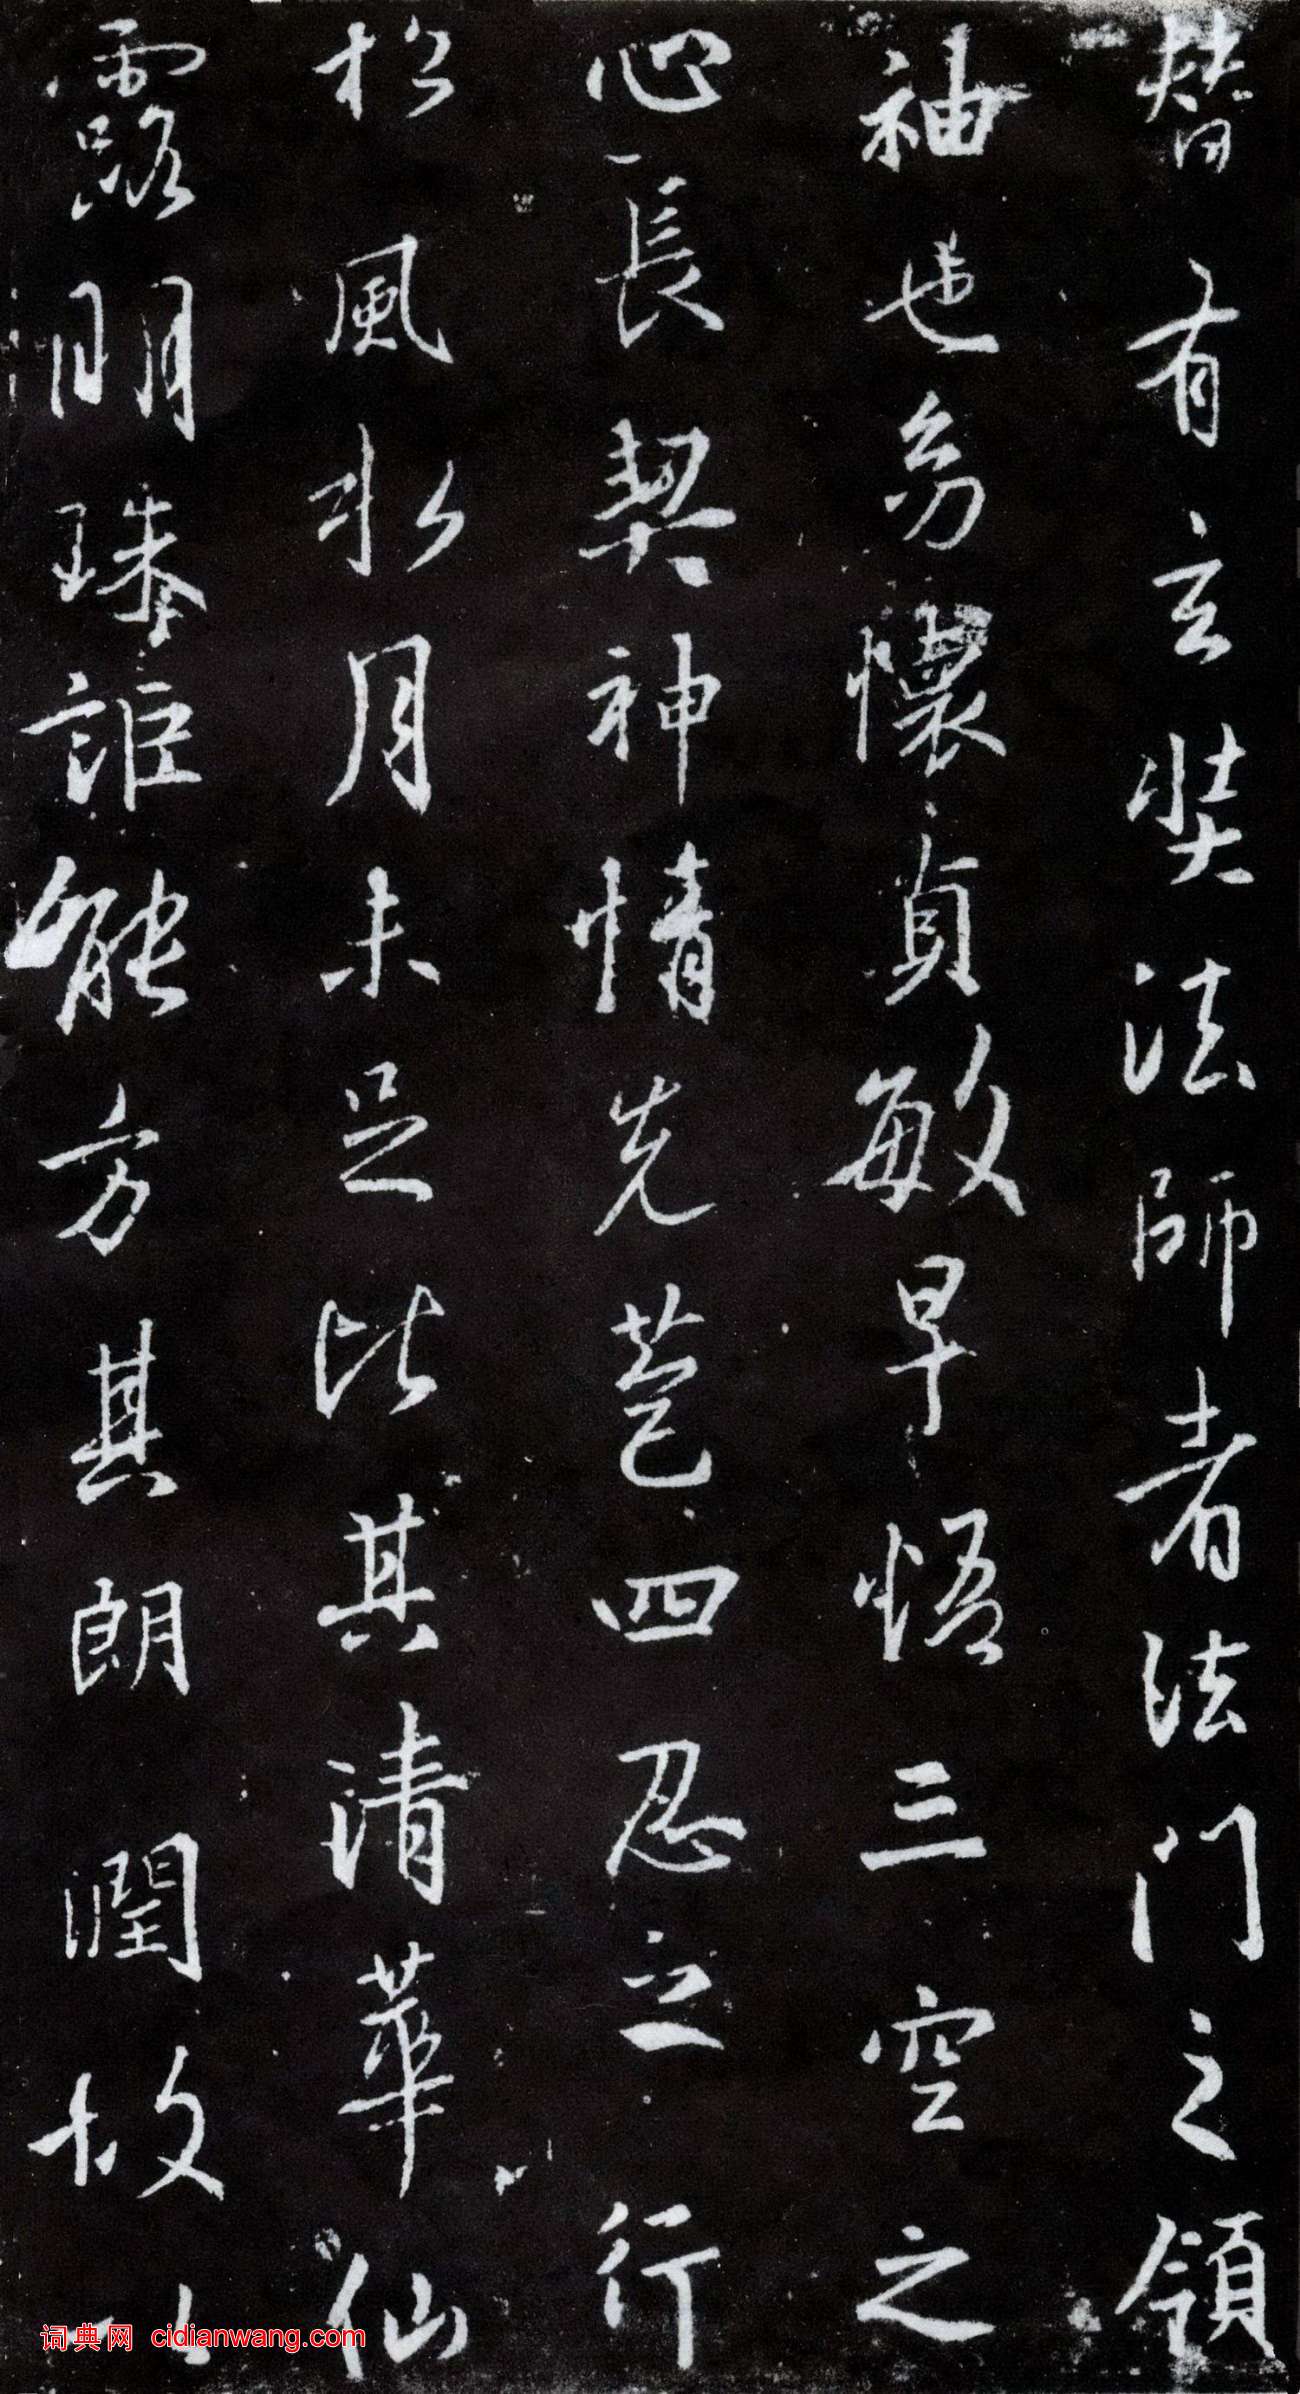 替有玄奘法師者法門之領
袖也幼懷貞敏早悟三空之
心長契神情先苞四忍之行
松風水月未足比其清華仙
露明珠詎能方其朗潤故以
词典网 cidianwang.com